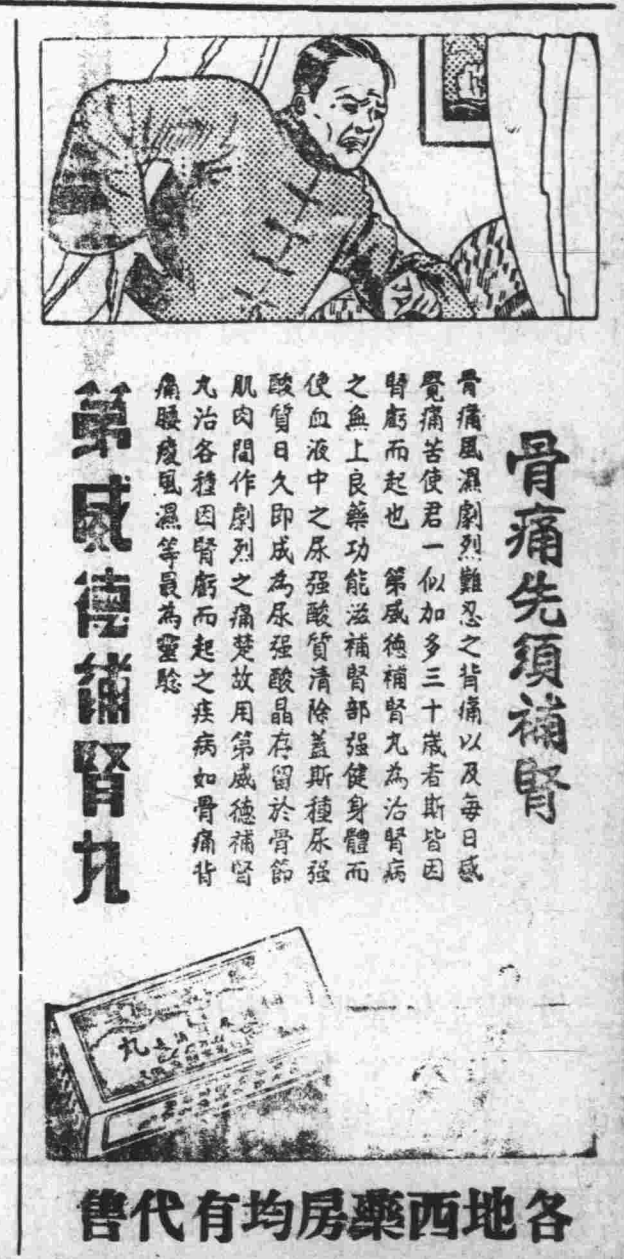 骨痛先須補腎
骨痛風濕劇烈難忍之背痛以及每日感
覺痛苦使君一似加多三十歲者斯皆因
腎虧而起也　第威德補腎丸為治腎病
之無上良藥功能滋補腎部强健身體而
使血液中之尿强酸質清除蓋斯種尿强
酸質日久即成為尿强酸晶存留於骨節
肌肉間作劇烈之痛楚故用第威德補腎
丸治各種因腎虧而起之疾病如骨痛背
痛腰痠風濕等最為靈驗
第威德補腎丸
丸
各地西藥房均有代售